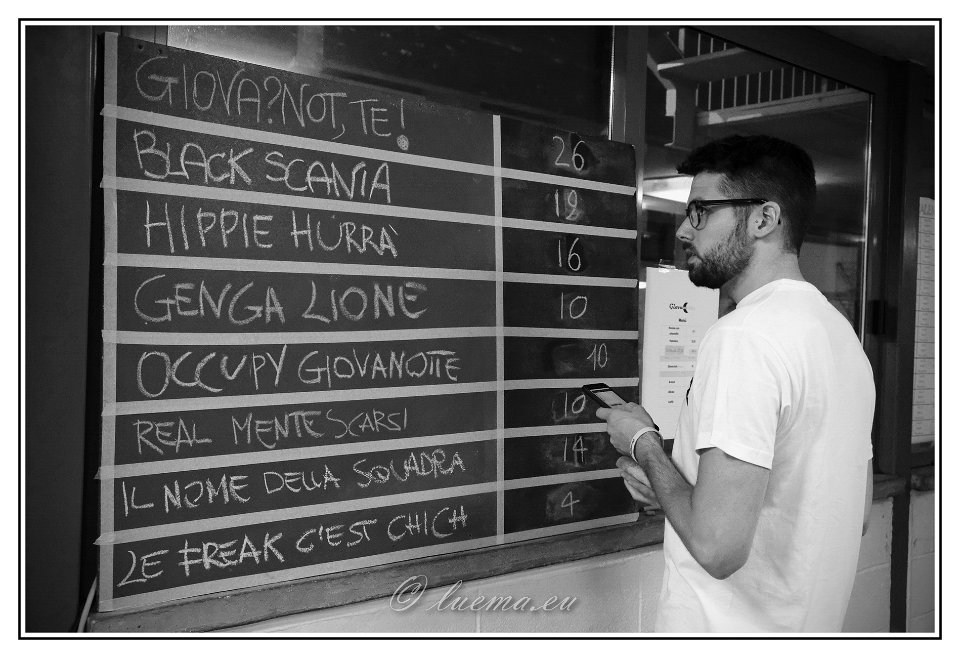 GIOVA?NOT, TE! 26
BLACK SCANIA 12
HIPPIE HURRÀ 16
GENGA LIONE 10
OCCUPY GIOVANOTTE 10
REAL MENTE SCARSI 10
IL NOME DELLA SQUADRA 14
LE FREAK C'EST CHICH 4
Menu
© luema.eu